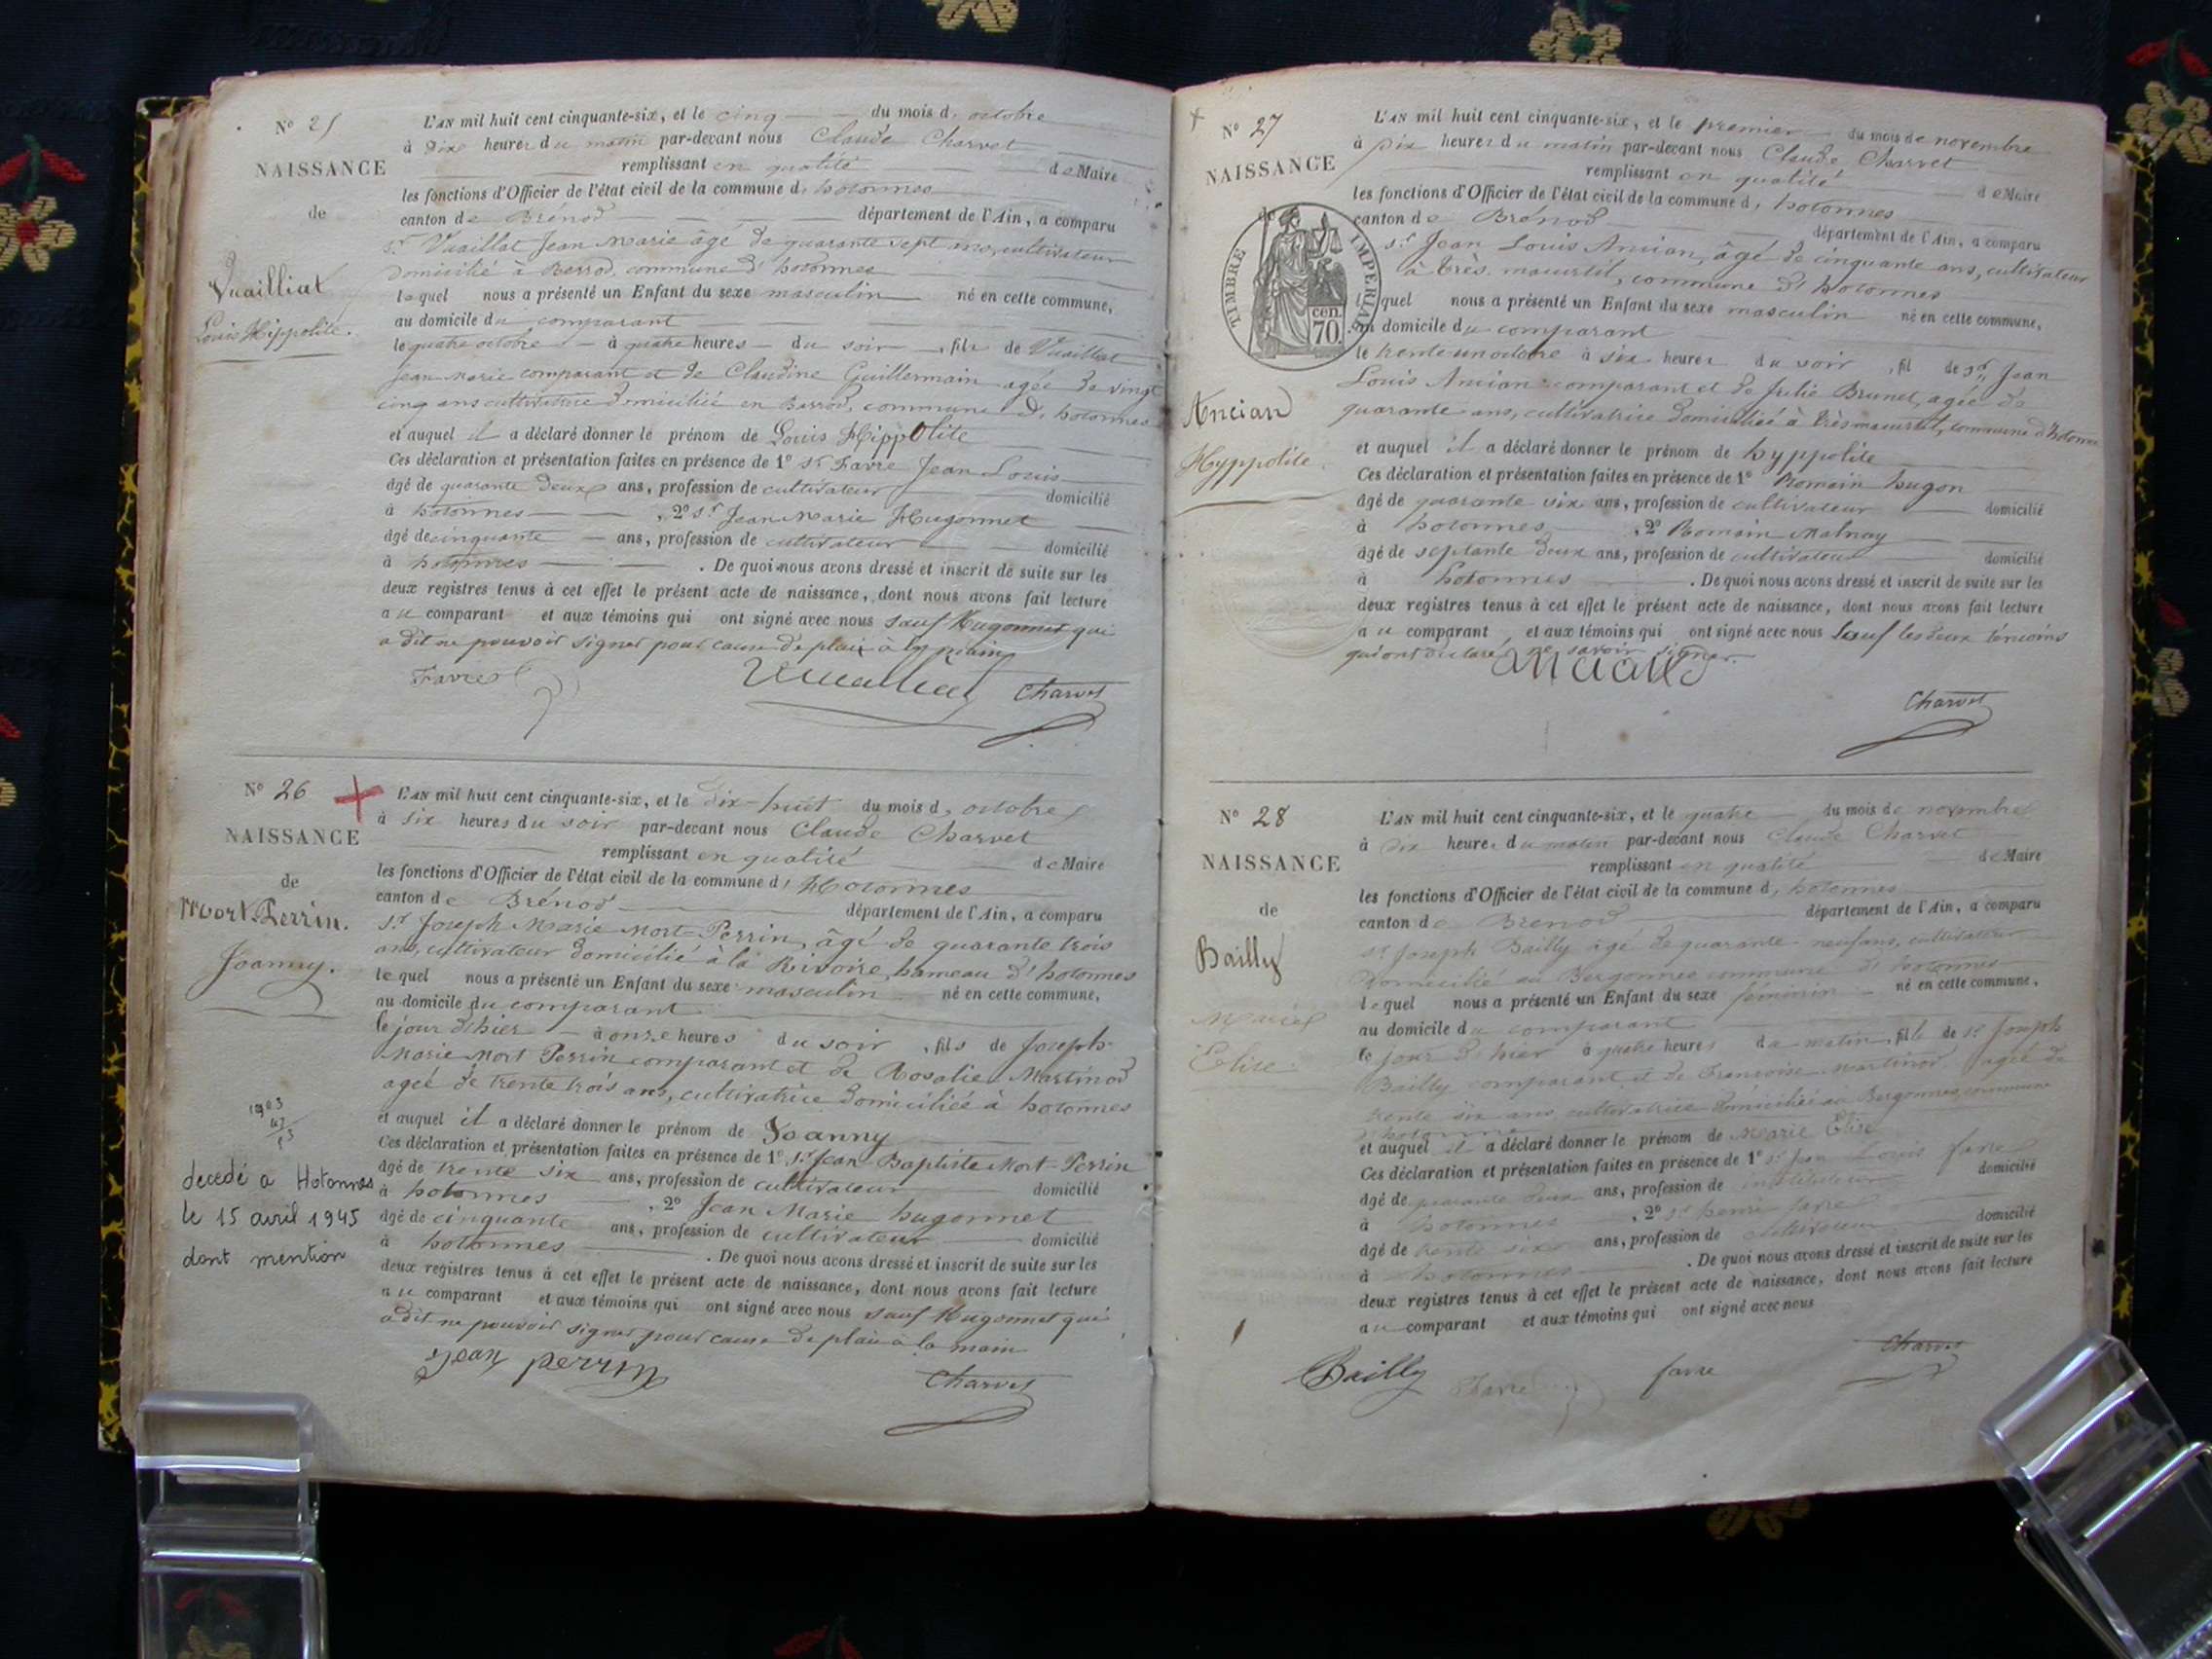 N° 25
NAISSANCE
de
Vuailliat
Louis Hippolite.
L'AN mil huit cent cinquante-six, et le cinq du mois d' octobre
à dix heures du matin par-devant nous Claude Charvet
remplissant en qualité de Maire
les fonctions d'Officier de l'état civil de la commune d' hotonnes
canton de Brénod département de l'Ain, a comparu
sr Vuaillat Jean Marie âgé de quarante sept ans, cultivateur
domicilié à commune d' hotonnes
lequel nous a présenté un Enfant du sexe masculin né en cette commune,
au domicile du comparant
le quatre octobre à quatre heures du soir, fils de Vuaillat
Jean Marie comparant et de Claudine Guillermain agée de vingt
cinq ans cultivatrice domiciliée en commune d' hotonnes
et auquel il a déclaré donner le prénom de Louis Hippolite
Ces déclaration et présentation faites en présence de 1° sr Favre Jean Louis
âgé de quarante deux ans, profession de cultivateur domicilié
à hotonnes, 2° sr Jean Marie Hugonnet
âgé de cinquante ans, profession de cultivateur domicilié
à hotonnes. De quoi nous avons dressé et inscrit de suite sur les
deux registres tenus à cet effet le présent acte de naissance, dont nous avons fait lecture
au comparant et aux témoins qui ont signé avec nous sauf Hugonnet qui
a dit ne pouvoir signer pour cause de plaie à la main
Favre Vuailliat Charvet
N° 26
NAISSANCE
de
Mort-Perrin.
Joanny.
1903
decedé a Hotonnes
le 15 avril 1945
dont mention
L'AN mil huit cent cinquante-six, et le dix-huit du mois d' octobre
à six heures du soir par-devant nous Claude Charvet
remplissant en qualité de Maire
les fonctions d'Officier de l'état civil de la commune d' Hotonnes
canton de Brénod département de l'Ain, a comparu
sr Joseph Marie Mort-Perrin, âgé de quarante trois
ans, cultivateur domicilié à la Rivoire, hameau d' hotonnes
lequel nous a présenté un Enfant du sexe masculin né en cette commune,
au domicile du comparant
le jour d'hier à onze heures du soir, fils de Joseph
Marie Mort Perrin comparant et de Rosalie Martinod
agée de trente trois ans, cultivatrice domiciliée à hotonnes
et auquel il a déclaré donner le prénom de Joanny
Ces déclaration et présentation faites en présence de 1° sr Jean-Baptiste Mort-Perrin
âgé de trente six ans, profession de cultivateur domicilié
à hotonnes, 2° Jean Marie hugonnet
âgé de cinquante ans, profession de cultivateur domicilié
à hotonnes. De quoi nous avons dressé et inscrit de suite sur les
deux registres tenus à cet effet le présent acte de naissance, dont nous avons fait lecture
au comparant et aux témoins qui ont signé avec nous sauf Hugonnet qui
a dit ne pouvoir signer pour cause de plaie à la main
Jean perrin Charvet
N° 27
NAISSANCE
de
TIMBRE IMPERIAL
70 cen.
Ancian
Hyppolite.
L'AN mil huit cent cinquante-six, et le premier du mois de novembre
à dix heures du matin par-devant nous Claude Charvet
remplissant en qualité de Maire
les fonctions d'Officier de l'état civil de la commune d' hotonnes
canton de Brénod département de l'Ain, a comparu
sr Jean Louis Ancian, âgé de cinquante ans, cultivateur
à commune d' hotonnes
lequel nous a présenté un Enfant du sexe masculin né en cette commune,
au domicile du comparant
le trente-un octobre à six heures du soir, fil de sr Jean
Louis Ancian comparant et de Julie Brunet, agée de
quarante ans, cultivatrice domiciliée à commune d'hotonnes
et auquel il a déclaré donner le prénom de hyppolite
Ces déclaration et présentation faites en présence de 1° Romain hugon
âgé de quarante six ans, profession de cultivateur domicilié
à hotonnes, 2° Romain Malnay
âgé de septante deux ans, profession de cultivateur domicilié
à hotonnes. De quoi nous avons dressé et inscrit de suite sur les
deux registres tenus à cet effet le présent acte de naissance, dont nous avons fait lecture
au comparant, et aux témoins qui ont signé avec nous sauf les deux témoins
qui ont déclaré ne savoir signer.
ancian
Charvet
N° 28
NAISSANCE
de
Bailly
Marie
Elise.
L'AN mil huit cent cinquante-six, et le quatre du mois de novembre
à dix heures du matin par-devant nous Claude Charvet
remplissant en qualité de Maire
les fonctions d'Officier de l'état civil de la commune d' hotonnes
canton de Brenod département de l'Ain, a comparu
sr Joseph Bailly âgé de quarante neuf ans, cultivateur
domicilié au Bergonnes commune d' hotonnes
lequel nous a présenté un Enfant du sexe féminin né en cette commune,
au domicile du comparant
le jour d'hier à quatre heures du matin, fille de sr Joseph
Bailly comparant et de Françoise Martinod agée de
trente six ans, cultivatrice domiciliée au Bergonnes commune
d'hotonnes
et auquel il a déclaré donner le prénom de Marie Elise
Ces déclaration et présentation faites en présence de 1° sr Jean Louis favre
âgé de quarante deux ans, profession de domicilié
à hotonnes, 2° sr henri favre
âgé de trente six ans, profession de cultivateur domicilié
à hotonnes. De quoi nous avons dressé et inscrit de suite sur les
deux registres tenus à cet effet le présent acte de naissance, dont nous avons fait lecture
au comparant et aux témoins qui ont signé avec nous
Bailly Favre favre Charvet